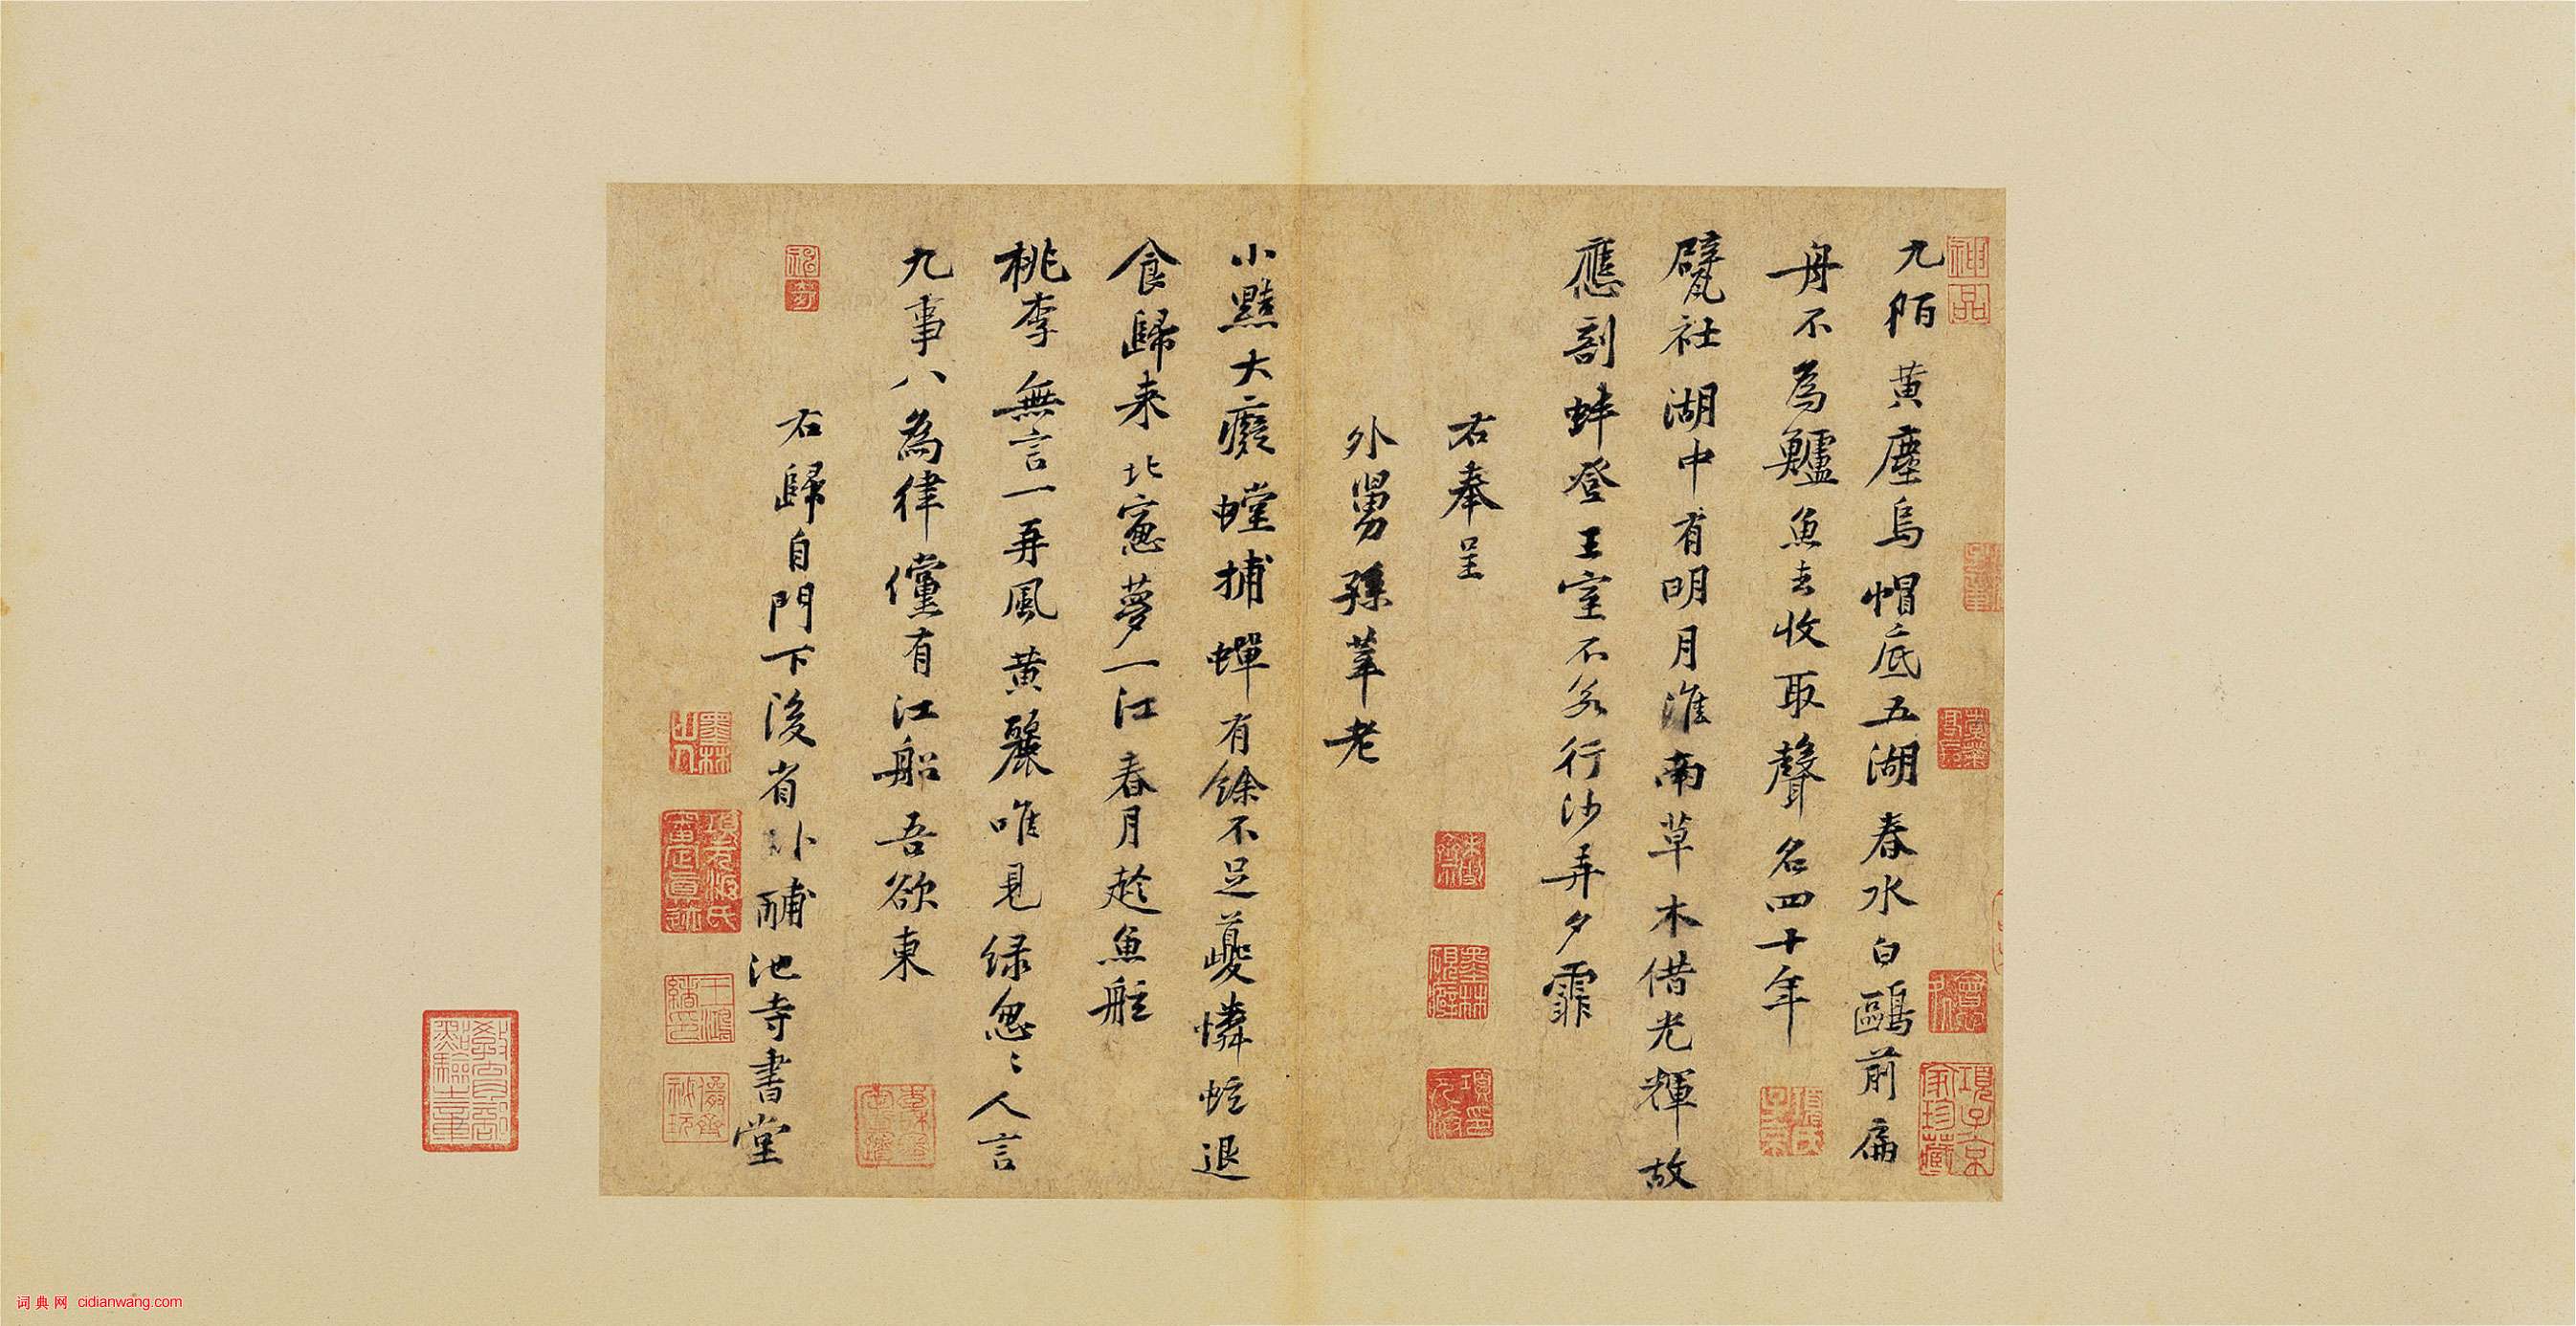 九陌黄塵烏帽底五湖春水白鷗前扁
舟不為鱸魚去收取聲名四十年
甓社湖中有明月淮南草木借光輝故
應剖蚌登王室不若行沙弄夕霏
右奉呈
外舅孫莘老
小黠大癡螳捕蟬有餘不足夔憐蚿退
食歸来北窓夢一江春月趁魚舡
桃李無言一再風黄鸝唯見緑忩〻人言
九事八為律儻有江船吾欲東
右歸自門下後省卧酺池寺書堂
神
品
項子京
家珍藏
墨林
山人
词典网 cidianwang.com